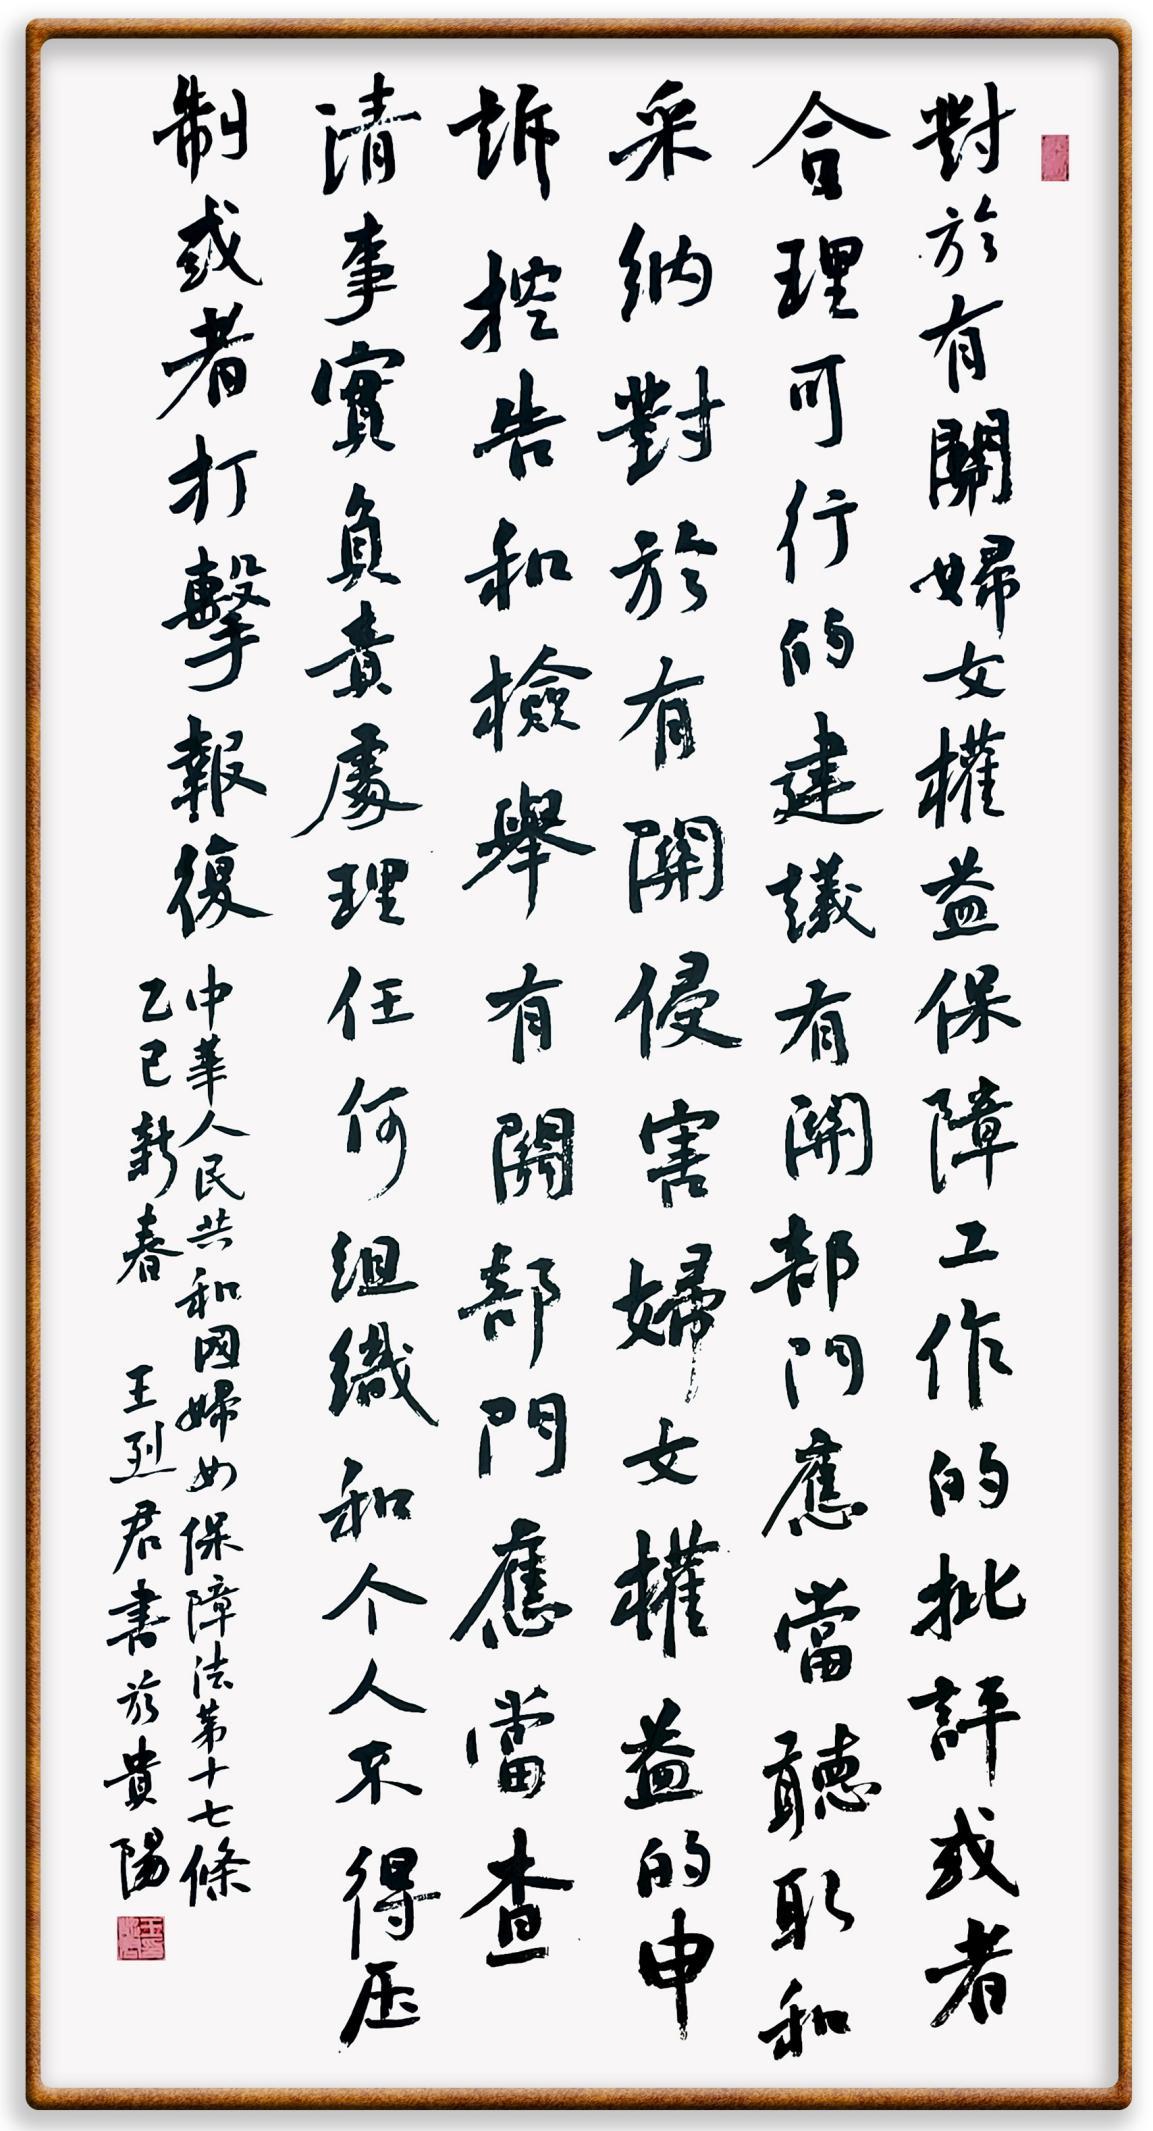 對於有關婦女權益保障工作的批評或者
合理可行的建議有關部門應當聽取和
采納對於有關侵害婦女權益的申
訴控告和檢舉有關部門應當查
清事實負責處理任何組織和个人不得压
制或者打擊報復
中華人民共和国婦女保障法第十七條
乙巳新春 王烈君書於貴陽